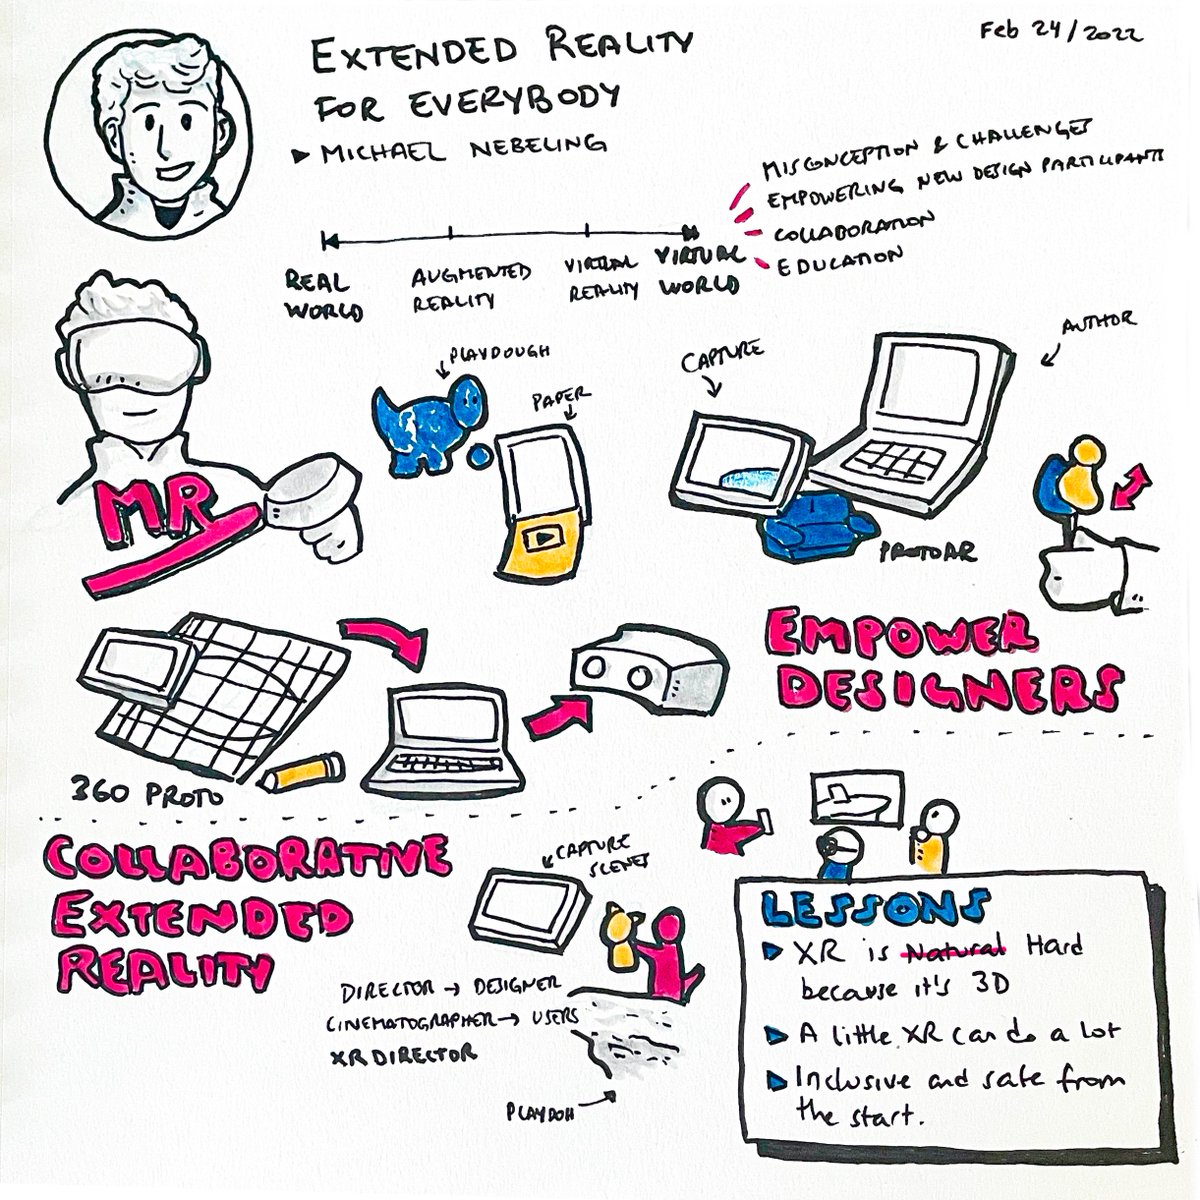 EXTENDED REALITY
FOR EVERYBODY
▶ MICHAEL NEBELING
Feb 24/2022
MISCONCEPTION & CHALLENGES
EMPOWERING NEW DESIGN PARTICIPANTS
COLLABORATION
EDUCATION
REAL
WORLD
AUGMENTED
REALITY
VIRTUAL
REALITY
VIRTUAL
WORLD
MR
PLAYDOUGH
PAPER
CAPTURE
AUTHOR
PROTOAR
EMPOWER
DESIGNERS
360 PROTO
COLLABORATIVE
EXTENDED
REALITY
CAPTURE
SCENES
DIRECTOR → DESIGNER
CINEMATOGRAPHER → USERS
XR DIRECTOR
PLAYDOH
LESSONS
▶ XR is Natural Hard
because it's 3D
▶ A little XR can do a lot
▶ Inclusive and safe from
the start.